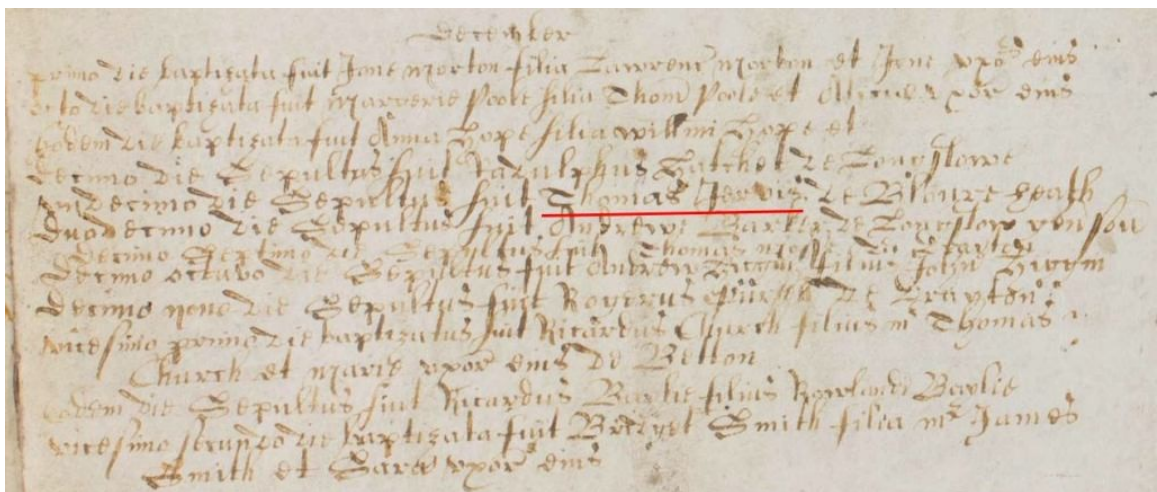 December
primo die baptizata fuit Jane Morton filia Lawrenc Morton et Jane uxor eius
octo die baptizata fuit Margerie Poole filia Thom Poole et uxor eius
Eodem die baptizata fuit Anna Hope filia Willmi Hope et
decimo die Sepultus fuit Radulphus Hatchet de Longslowe
undecimo die Sepultus fuit Thomas Jervis de Bloure heath
duodecimo die Sepultus fuit Andrewe Barker de Longslow
decimo septimo die Sepultus fuit Thomas de Drayton
decimo octavo die Sepultus fuit Andrew filius John
decimo nono die Sepultus fuit Rogerus de Drayton
vicesimo primo die baptizatus fuit Ricardus Church filius mr Thomas
Church et Marie uxor eius de Betton
Eodem die Sepultus fuit Ricardus Baylie filius Rowlandi Baylie
vicesimo secundo die baptizata fuit Bridget Smith filia mr James
Smith et Sara uxor eius